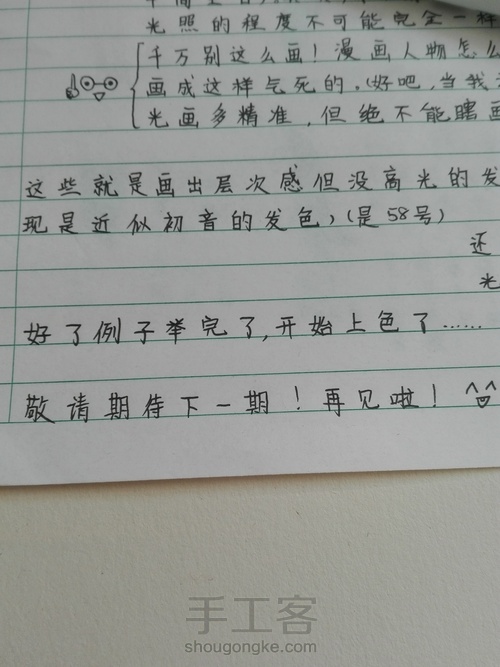 光照的程度不可能完全一样
千万别这么画！漫画人物怎么
画成这样气死的.(好吧,当我
光画多精准,但绝不能瞎画
这些就是画出层次感但没高光的发
现是近似初音的发色,)(是58号)
还
光
好了例子举完了,开始上色了……
敬请期待下一期！再见啦！
手工客
shougongke.com